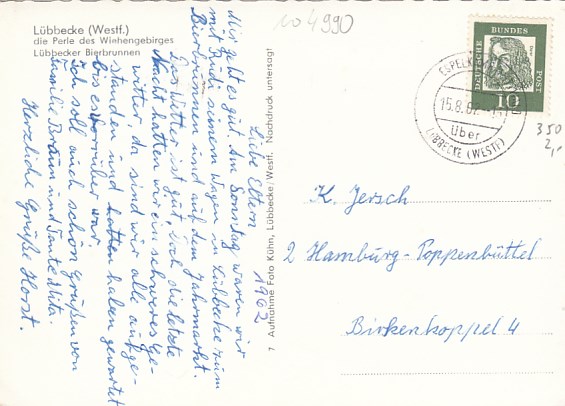 Lübbecke (Westf.)
die Perle des Wiehengebirges
Lübbecker Bierbrunnen
104990
DEUTSCHE BUNDES POST
10
ESPELK
15.8.62
über
LÜBBECKE (WESTF)
350
2,-
Liebe Eltern 1962
Mir geht es gut. Am Sonntag waren wir
mit Rudi seinem Wagen in Lübbecke zum
Bierbrunnen und auf dem Jahrmarkt.
Das Wetter ist gut, doch die letzte
Nacht hatten wir ein schweres Ge-
witter, da sind wir alle aufge-
standen und hatten haben gewartet
bis es vorrüber war.
Ich soll euch schön Grüßen von
Familie Braun und Tante
Herzliche Grüße Horst.
7 Aufnahme Foto Kühn, Lübbecke/Westf. Nachdruck untersagt
K. Jersch
2 Hamburg-Poppenbüttel
Birkenkoppel 4